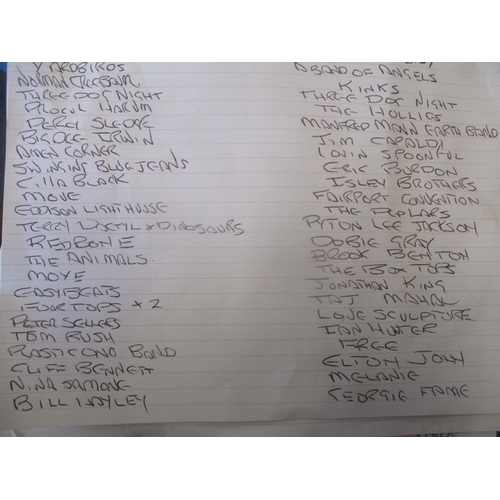 YARDBIRDS
NORMAN GREENBAUM
THREE DOG NIGHT
PROCUL HARUM
PERCY SLEDGE
BIG DEE IRWIN
AMEN CORNER
SWINGING BLUE JEANS
CILLA BLACK
MOVE
EDDISON LIGHTHOUSE
TERRY DACTYL & DINOSAURS
REDBONE
THE ANIMALS.
MOVE
EASYBEATS
FOUR TOPS x 2
PETER SELLERS
TOM RUSH
PLASTIC ONO BAND
CLIFF BENNETT
NINA SAMONE
BILL HAYLEY
A BAND OF ANGELS
KINKS
THREE DOG NIGHT
THE HOLLIES
MANFRED MANN EARTH BAND
JIM CAPALDI
LOVIN SPOONFUL
ERIC BURDON
ISLEY BROTHERS
FAIRPORT CONVENTION
THE POPLARS
PYTON LEE JACKSON
DOBIE GRAY
BROOK BENTON
THE BOX TOPS
JONATHAN KING
TAJ MAHAL
LOVE SCULPTURE
IAN HUNTER
FREE
ELTON JOHN
MELANIE
GEORGIE FAME